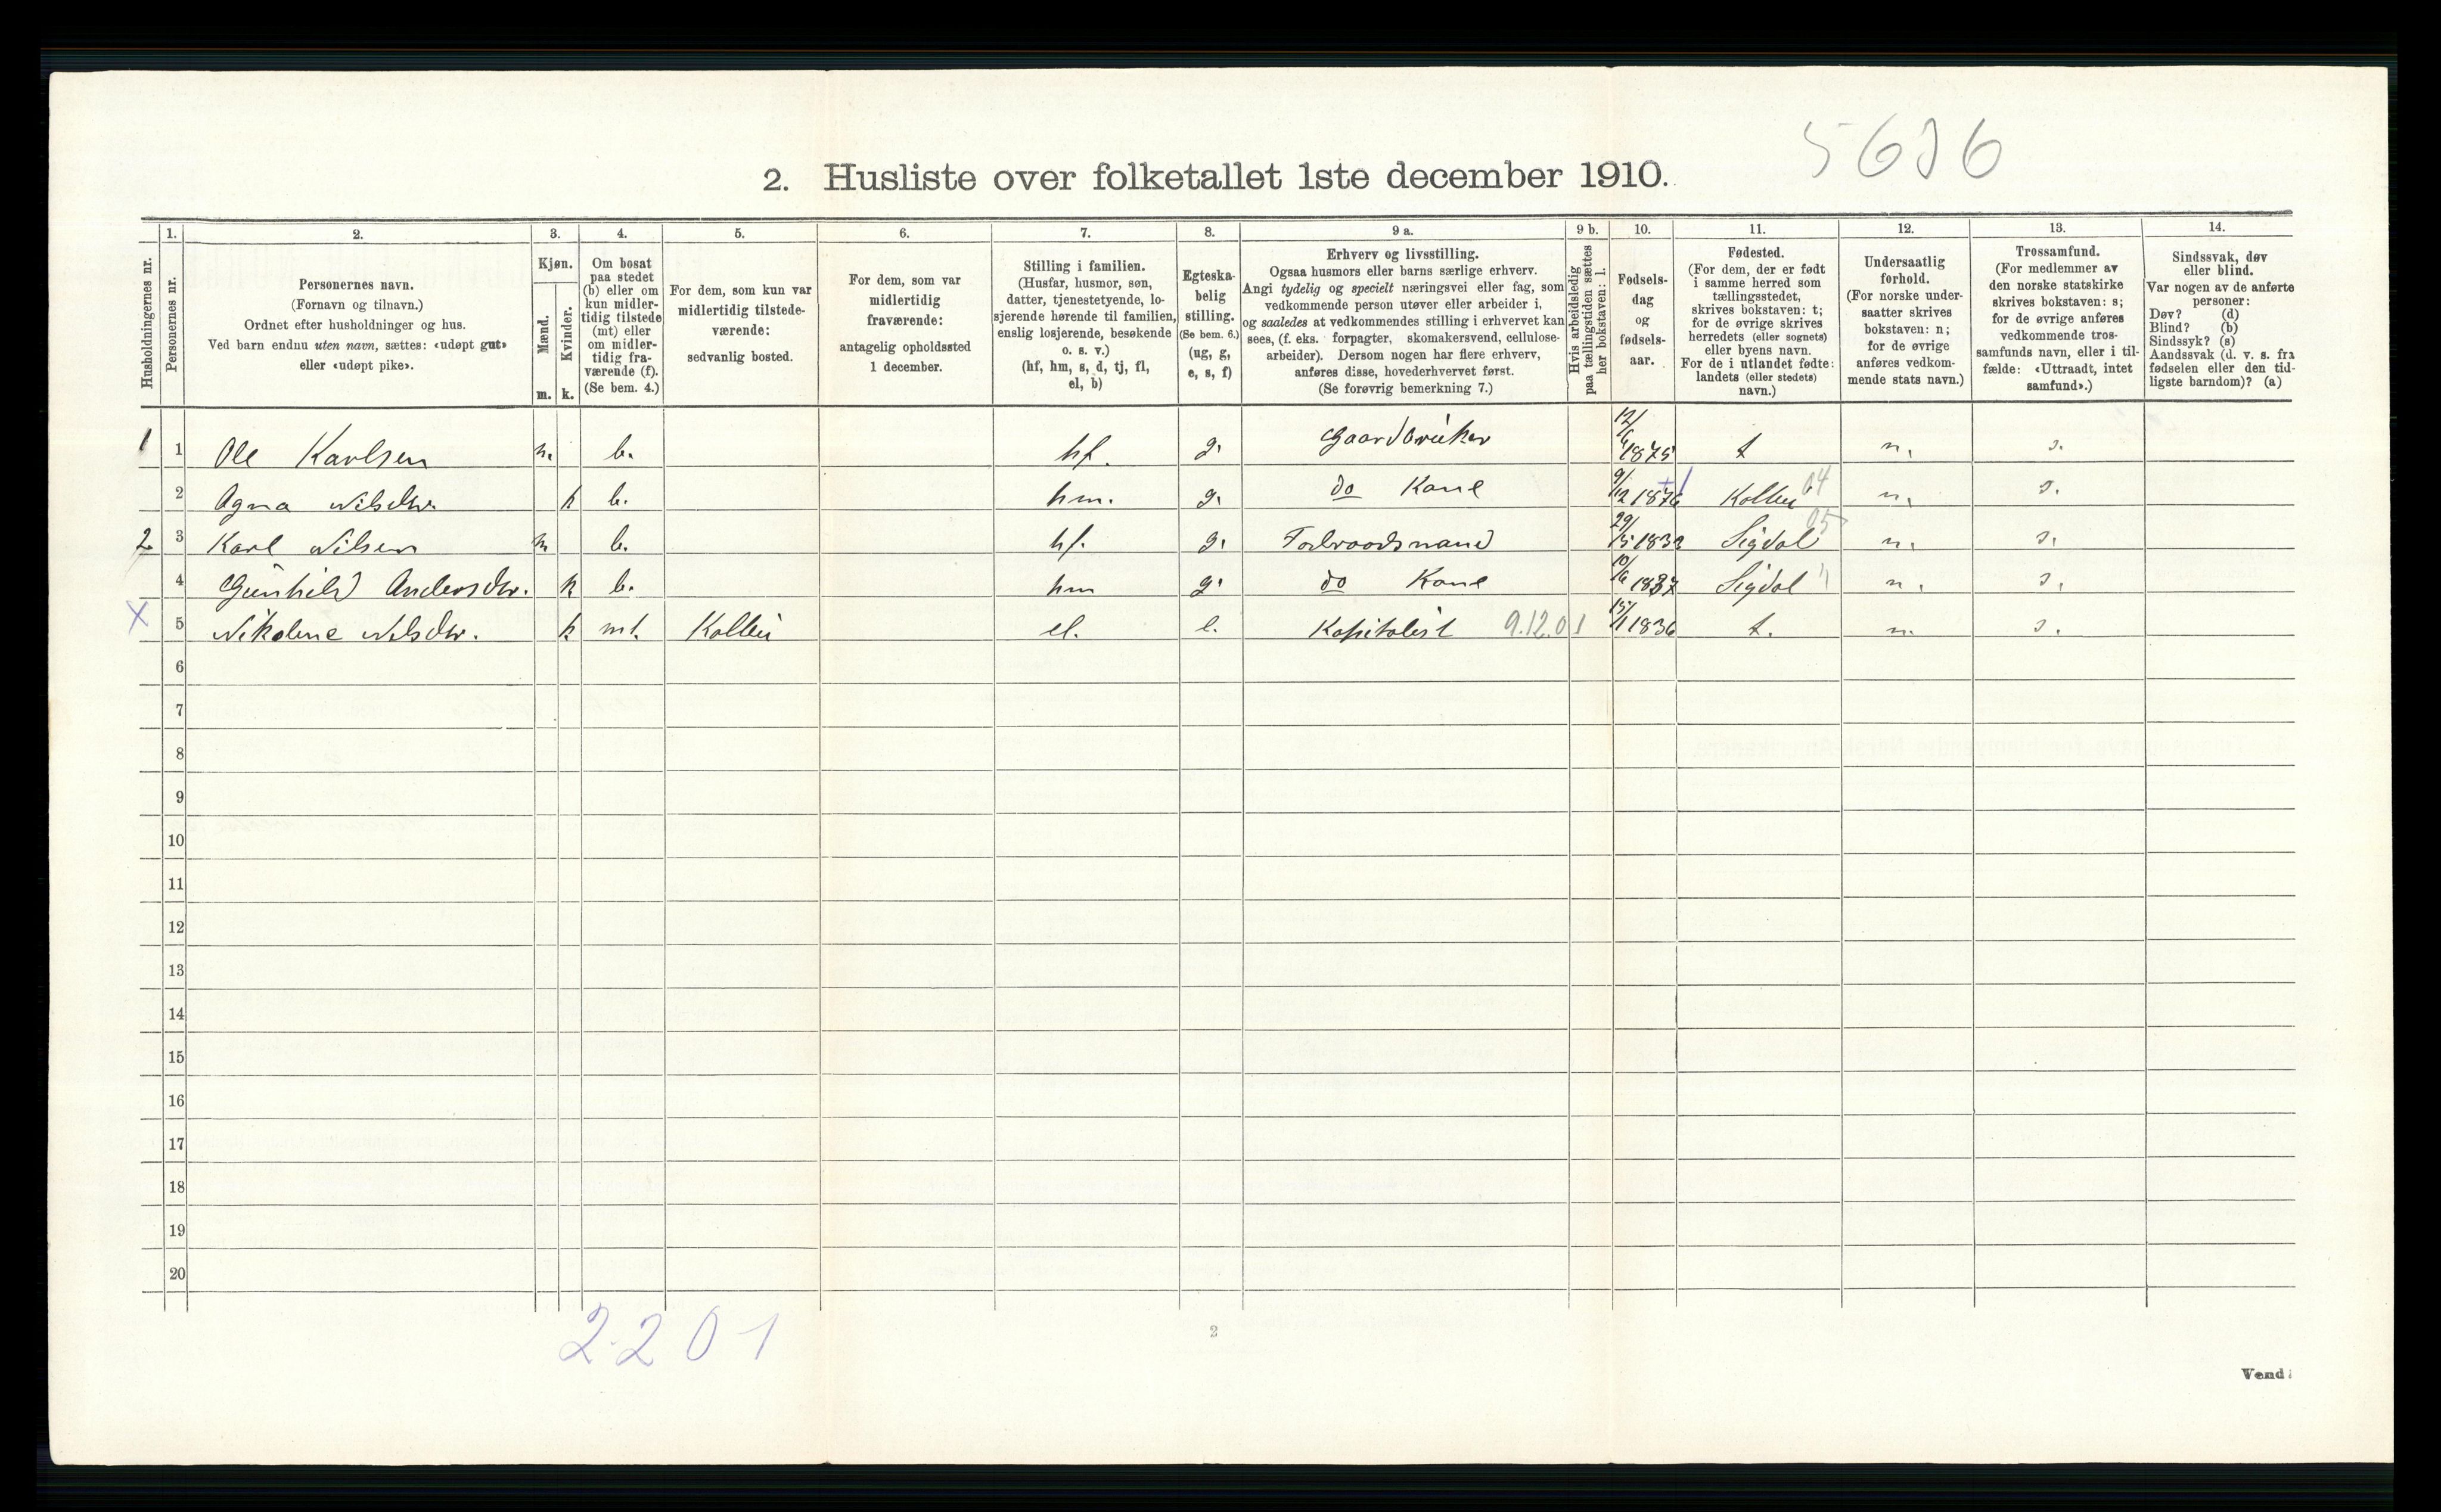 5636
2. Husliste over folketallet 1ste december 1910.
Husholdningernes nr.
1. Personernes nr.
2. Personernes navn.
(Fornavn og tilnavn.)
Ordnet efter husholdninger og hus.
Ved barn endnu uten navn, sættes: «udøpt gut»
eller «udøpt pike».
3. Kjøn.
Mænd. m.
Kvinder. k.
4. Om bosat
paa stedet
(b) eller om
kun midler-
tidig tilstede
(mt) eller
om midler-
tidig fra-
værende (f).
(Se bem. 4.)
5. For dem, som kun var
midlertidig tilstede-
værende:
sedvanlig bosted.
6. For dem, som var
midlertidig
fraværende:
antagelig opholdssted
1 december.
7. Stilling i familien.
(Husfar, husmor, søn,
datter, tjenestetyende, lo-
sjerende hørende til familien,
enslig losjerende, besøkende
o. s. v.)
(hf, hm, s, d, tj, fl,
el, b)
8. Egteska-
belig
stilling.
(Se bem. 6.)
(ug, g,
e, s, f)
9 a. Erhverv og livsstilling.
Ogsaa husmors eller barns særlige erhverv.
Angi tydelig og specielt næringsvei eller fag, som
vedkommende person utøver eller arbeider i,
og saaledes at vedkommendes stilling i erhvervet kan
sees, (f. eks. forpagter, skomakersvend, cellulose-
arbeider). Dersom nogen har flere erhverv,
anføres disse, hovederhvervet først.
(Se forøvrig bemerkning 7.)
9 b. Hvis arbeidsledig
paa tællingstiden sættes
her bokstaven: l.
10. Fødsels-
dag
og
fødsels-
aar.
11. Fødested.
(For dem, der er født
i samme herred som
tællingsstedet,
skrives bokstaven: t;
for de øvrige skrives
herredets (eller sognets)
eller byens navn.
For de i utlandet fødte:
landets (eller stedets)
navn.)
12. Undersaatlig
forhold.
(For norske under-
saatter skrives
bokstaven: n;
for de øvrige
anføres vedkom-
mende stats navn.)
13. Trossamfund.
(For medlemmer av
den norske statskirke
skrives bokstaven: s;
for de øvrige anføres
vedkommende tros-
samfunds navn, eller i til-
fælde: «Uttraadt, intet
samfund».)
14. Sindssvak, døv
eller blind.
Var nogen av de anførte
personer:
Døv? (d)
Blind? (b)
Sindssyk? (s)
Aandssvak (d. v. s. fra
fødselen eller den tid-
ligste barndom)? (a)
1 1 Ole Karlsen m. b. hf. g. Gaardbruker 12/4 1875 t n. s.
2 Agna Nilsdtr. k b. hm. g. do Kone 9/12 1876 Kollen 04 n. s.
2 3 Karl Nilsen m b. hf. g. Foderaadsmand 29/5 1833 Sigdal 05 n. s.
4 Gunhild Andersdtr. k b. hm g. do Kone 10/6 1837 Sigdal " n. s.
X 5 Nikoline Nilsdtr. k mt. Kollen el. e. Kapitalist 9.12.01 15/1 1836 t. n. s.
6
7
8
9
10
11
12
13
14
15
16
17
18
19
20
2.201
2
Vend!